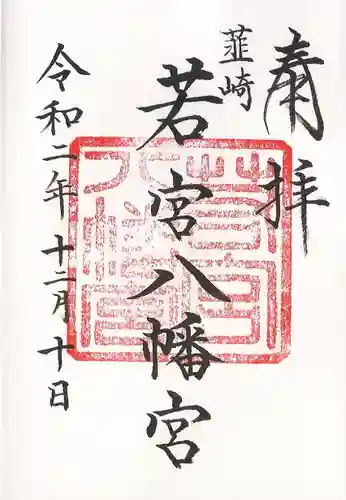 奉拝
韮崎
若宮八幡宮
令和二年十二月十日
若宮八幡宮